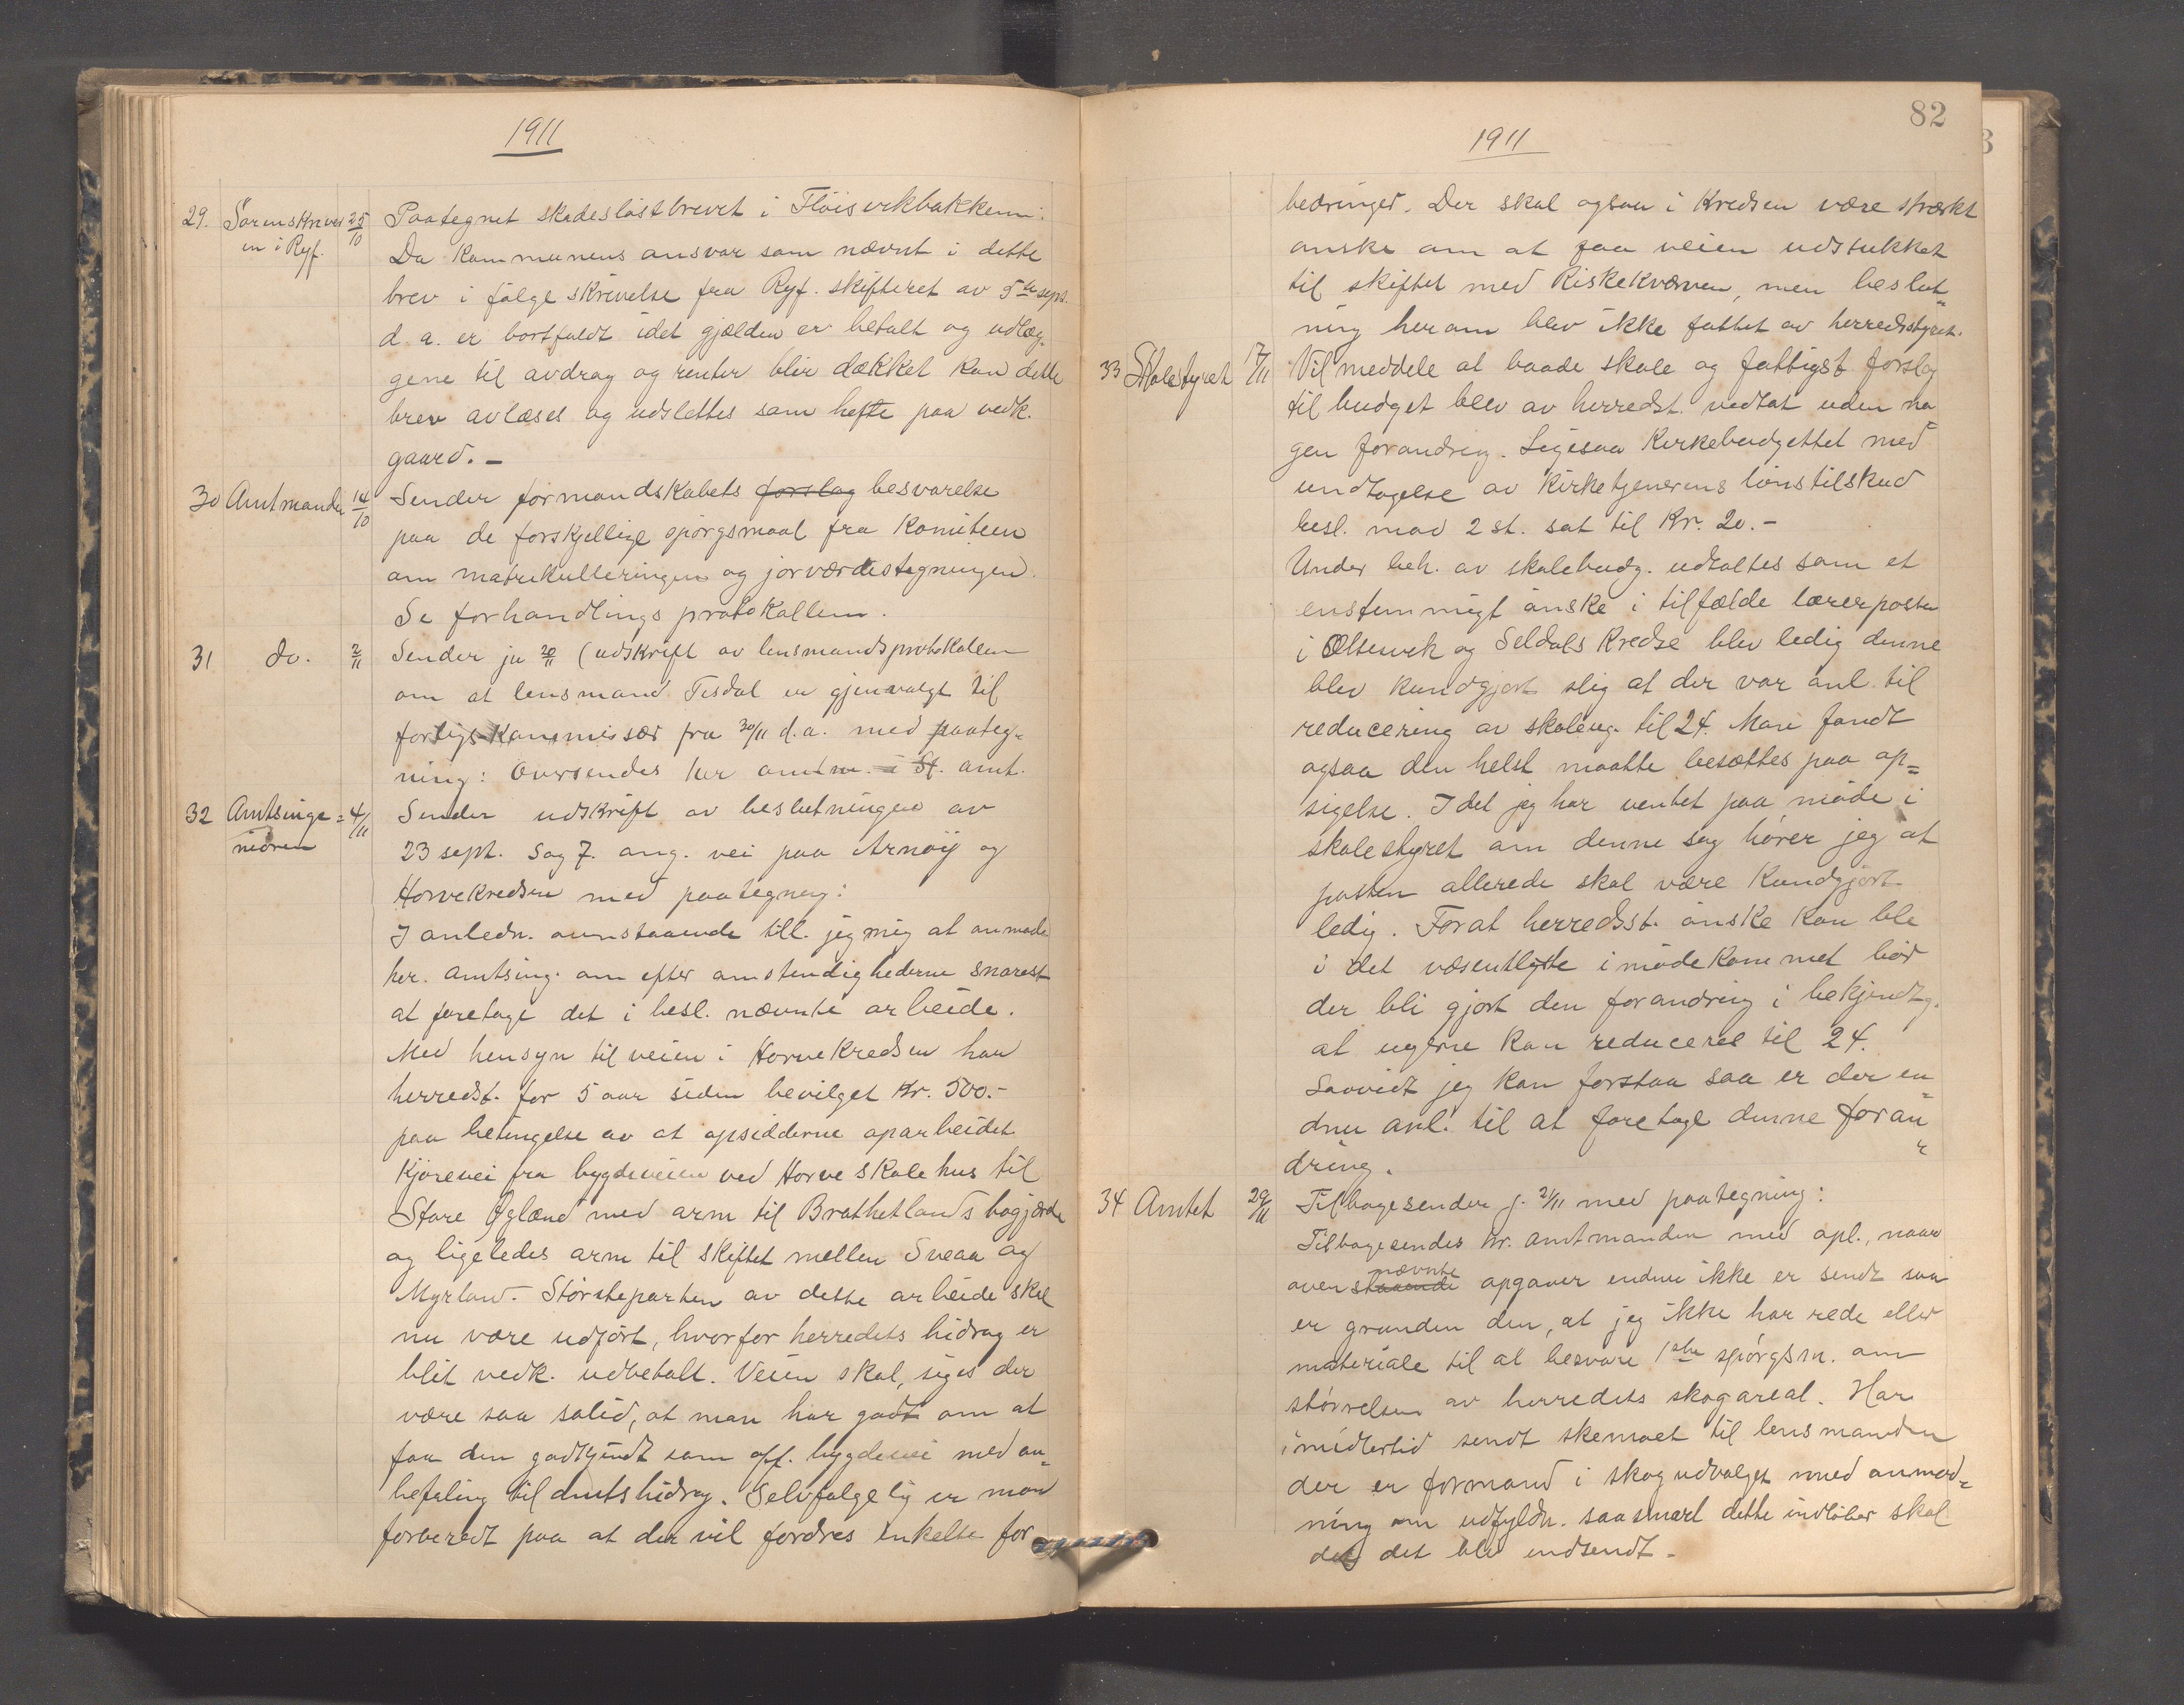 1911
29. Sorenskriver 25/10 Paategnet skadesløstbrevet i Fløisvikbakken:
en i Ryf. Da kommunens ansvar som nævnt i dette
brev i følge skrivelse fra Ryf. skifteret av 5te sept.
d. a. er bortfaldt idet gjælden er betalt og udlæg-
gene til avdrag og renter blir dækket kan dette
brev avlæses og udslettes som hefte paa vedk.
gaard. –
30 Amtmanden 14/10 Sender formandskabets forslag besvarelse
paa de forskjellige spørgsmaal fra Komiteen
om matrikulleringen og jorværdistegningen.
Se forhandlings protokollen.
31 do. 2/11 Sender ju 20/11 (udskrift av lensmandsprotokollen
om at lensmand Tisdal er gjenvalgt til
forligs-kommissær fra 30/11 d. a. med paateg-
ning: Oversendes hr amtm. i St. amt.
32 Amtsinge= 4/11 Sender udskrift av beslutningen av
niøren 23 sept. Sag 7. ang. vei paa Arnøy og
Horvekredsen med paategning:
I anledn. ovenstaaende till. jeg mig at anmode
hr. amtsing. om efter omstendighederne snarest
at foretage det i besl. nævnte arbeide.
Med hensyn til veien i Horvekredsen har
herredst. for 5 aar siden bevilget Kr. 500.-
paa betingelse av at opsidderne oparbeidet
Kjørevei fra bygdeveien ved Horve skolehus til
Store Øglænd med arm til Brathetlands bøgjærde
og ligeledes arm til skiftet mellem Sveaa og
Myrland. Størsteparten av dette arbeide skal
nu være udført, hvorfor herredets bidrag er
blit vedk. udbetalt. Veien skal, siges der
være saa solid, at man har godt om at
faa den godkjendt som off. bygdevei med an-
befaling til amtsbidrag. Selvfølgelig er man
forberedt paa at der vil fordres enkelte for
82
1911
bedringer. Der skal ogsaa i Kredsen være stærkt
ønske om at faa veien udstukket
til skiftet med Riskekværnen, men beslut-
ning herom blev ikke fattet av herredsstyret.
33 Skolestyret 17/11 Vil meddele at baade skole og fattigst. forslag
til budget blev av herredst. vedtat uden no
gen forandring. Ligesaa Kirkebudgettet med
undtagelse av Kirketjenerens lønstilskud
besl. mod 2 st. sat til Kr. 20.-
Under beh. av skolebudg. udtaltes som et
enstemmigt ønske i tilfælde lærerposten
i Oltesvik og Seldals Kredse blev ledig denne
blev kundgjort slig at der var anl. til
reducering av skoleug. til 24. Man fandt
ogsaa den helst maatte besættes paa op=
sigelse. I det jeg har ventet paa møde i
skolestyret om denne sag hører jeg at
posten allerede skal være Kundgjort
ledig. Forat herredsst. ønske kan bli
i det væsentligste imødekommet bør
der bli gjort den forandring i bekjendtg.
at ugerne kan reduceres til 24.
Saavidt jeg kan forstaa saa er der en
dnu anl. til at foretage denne foran
dring.
34 Amtet 29/11 Tilbagesender j. 2/11 med paategning:
Tilbagesendes hr. amtmanden med opl., naar
nævnte
ovenstaaende opgaver endnu ikke er sendt saa
er grunden den, at jeg ikke har rede eller
materiale til at besvare 1ste spørgsm. om
størrelsen av herredets skogareal. Har
imidlertid sendt skemaet til lensmanden
der er formand i skogudvalget med anmod=
ning om udfyldn. saasnart dette indløber skal
det det blir indsendt.